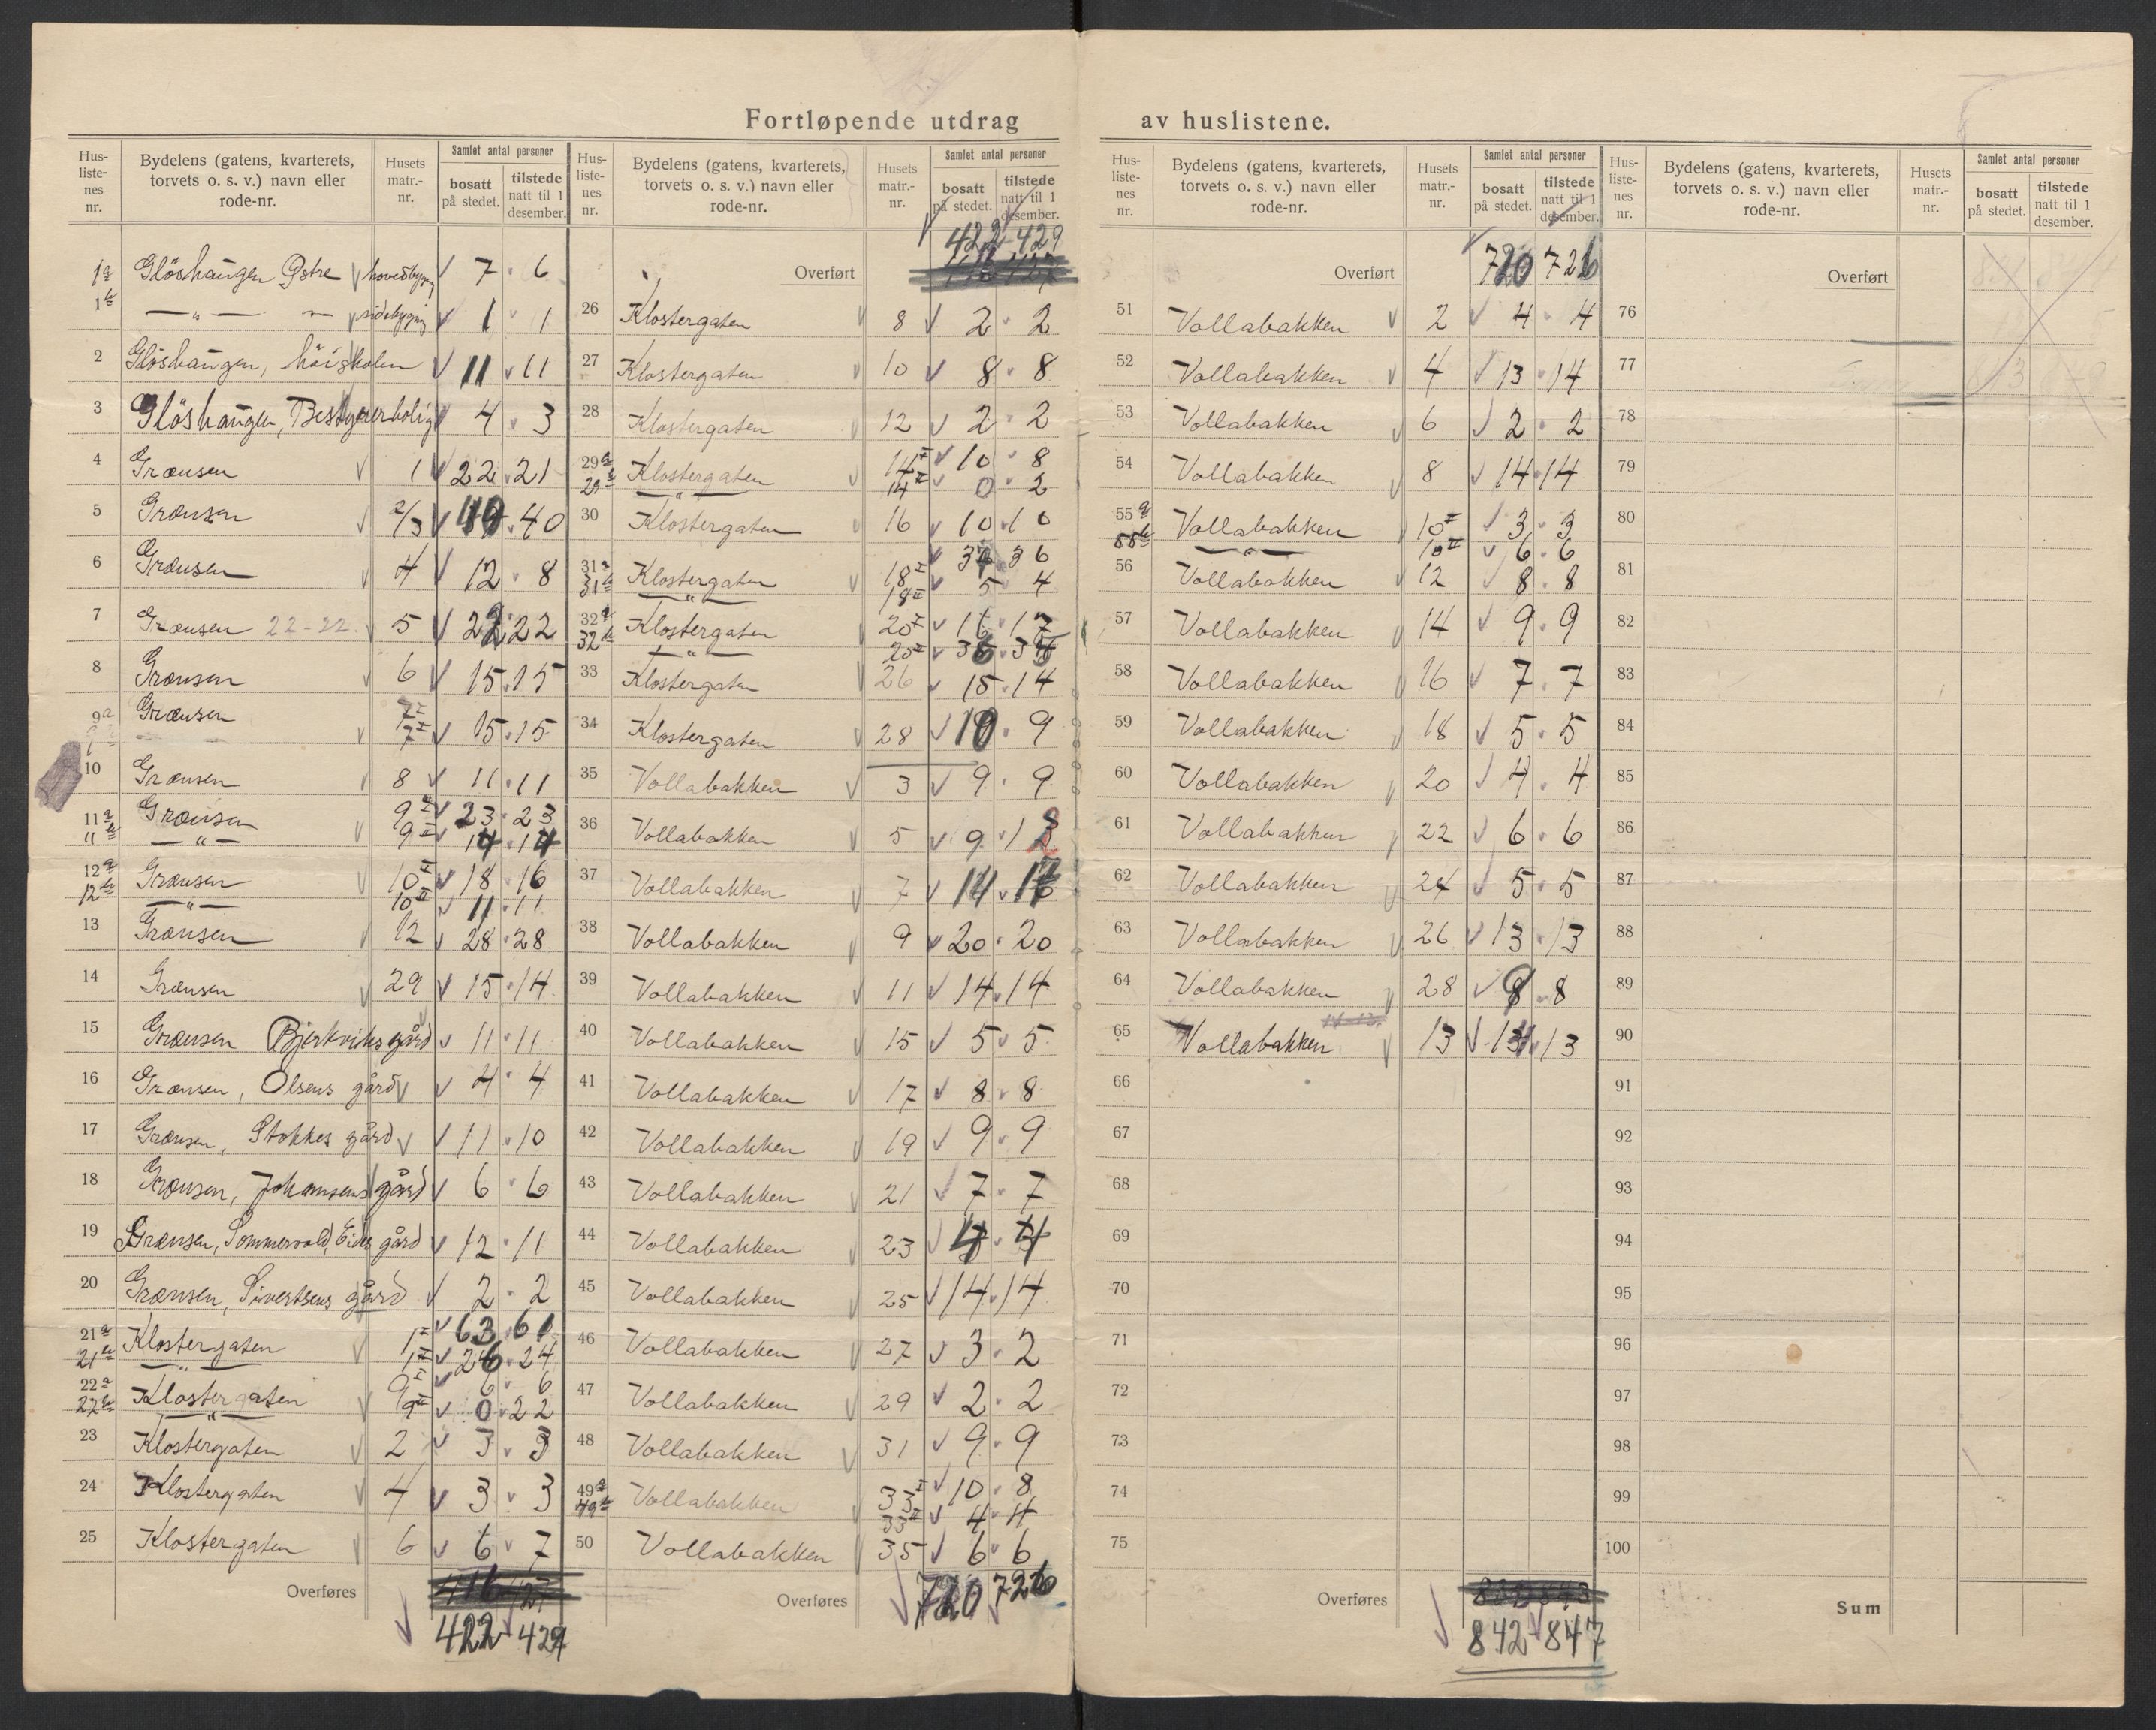 Fortløpende utdrag av huslistene.
Hus-liste-nes nr. Bydelens (gatens, kvarterets, torvets o. s. v.) navn eller rode-nr. Husets matr.-nr. Samlet antal personer bosatt på stedet. tilstede natt til 1 desember.
1a Glöshaugen Östre hovedbygn 7 6
1b — " — sidebygn 1 1
2 Glöshaugen, höiskolen 11 11
3 Glöshaugen, Bestyrerbolig 4 3
4 Grænsen 1 22 21
5 Grænsen 2/3 40
6 Grænsen 4 12 8
7 Grænsen 22-22 5 22 22
8 Grænsen 6 15 15
9a Grænsen 7I
7II 15 15
10 Grænsen 8 11 11
11a Grænsen 9I 23 23
11b — " — 9II 14 14
12a Grænsen 10I 18 16
12b — " — 10II 11 11
13 Grænsen 12 28 28
14 Grænsen 29 15 14
15 Grænsen Bjerkviks gård 11 11
16 Grænsen, Olsens gård 4 4
17 Grænsen, Stokkes gård 11 10
18 Grænsen, Johansens gård 6 6
19 Grænsen, Sommervold, Eides gård 12 11
20 Grænsen, Sivertsens gård 2 2
21a Klostergaten 1I 63 61
21b — " — 1II 26 24
22a Klostergaten 9I 6 6
22b — " — 9II 0 22
23 Klostergaten 2 3 3
24 Klostergaten 4 3 3
25 Klostergaten 6 6 7
Overføres
422 429
Hus-liste-nes nr. Bydelens (gatens, kvarterets, torvets o. s. v.) navn eller rode-nr. Husets matr.-nr. Samlet antal personer bosatt på stedet. tilstede natt til 1 desember.
422 429
Overført
26 Klostergaten 8 2 2
27 Klostergaten 10 8 8
28 Klostergaten 12 2 2
29a Klostergaten 14I 10 8
29b — " — 14II 0 2
30 Klostergaten 16 10 10
31a Klostergaten 18I 37 36
31b — " — 18II 5 4
32a Klostergaten 20I 16 17
32b — " — 20II
33 Klostergaten 26 15 14
34 Klostergaten 28 10 9
35 Vollabakken 3 9 9
36 Vollabakken 5 9
37 Vollabakken 7 14
38 Vollabakken 9 20 20
39 Vollabakken 11 14 14
40 Vollabakken 15 5 5
41 Vollabakken 17 8 8
42 Vollabakken 19 9 9
43 Vollabakken 21 7 7
44 Vollabakken 23 4 4
45 Vollabakken 25 14 14
46 Vollabakken 27 3 2
47 Vollabakken 29 2 2
48 Vollabakken 31 9 9
49a Vollabakken 33I 10 8
49b 33II 4 4
50 Vollabakken 35 6 6
Overføres 720 726
Hus-liste-nes nr. Bydelens (gatens, kvarterets, torvets o. s. v.) navn eller rode-nr. Husets matr.-nr. Samlet antal personer bosatt på stedet. tilstede natt til 1 desember.
Overført 720 726
51 Vollabakken 2 4 4
52 Vollabakken 4 13 14
53 Vollabakken 6 2 2
54 Vollabakken 8 14 14
55a Vollabakken 10I 3 3
55b — " — 10II 6 6
56 Vollabakken 12 8 8
57 Vollabakken 14 9 9
58 Vollabakken 16 7 7
59 Vollabakken 18 5 5
60 Vollabakken 20 4 4
61 Vollabakken 22 6 6
62 Vollabakken 24 5 5
63 Vollabakken 26 13 13
64 Vollabakken 28 8 8
65 Vollabakken 13 13 13
66
67
68
69
70
71
72
73
74
75
Overføres
842 847
Hus-liste-nes nr. Bydelens (gatens, kvarterets, torvets o. s. v.) navn eller rode-nr. Husets matr.-nr. Samlet antal personer bosatt på stedet. tilstede natt til 1 desember.
Overført
76
77
78
79
80
81
82
83
84
85
86
87
88
89
90
91
92
93
94
95
96
97
98
99
100
Sum